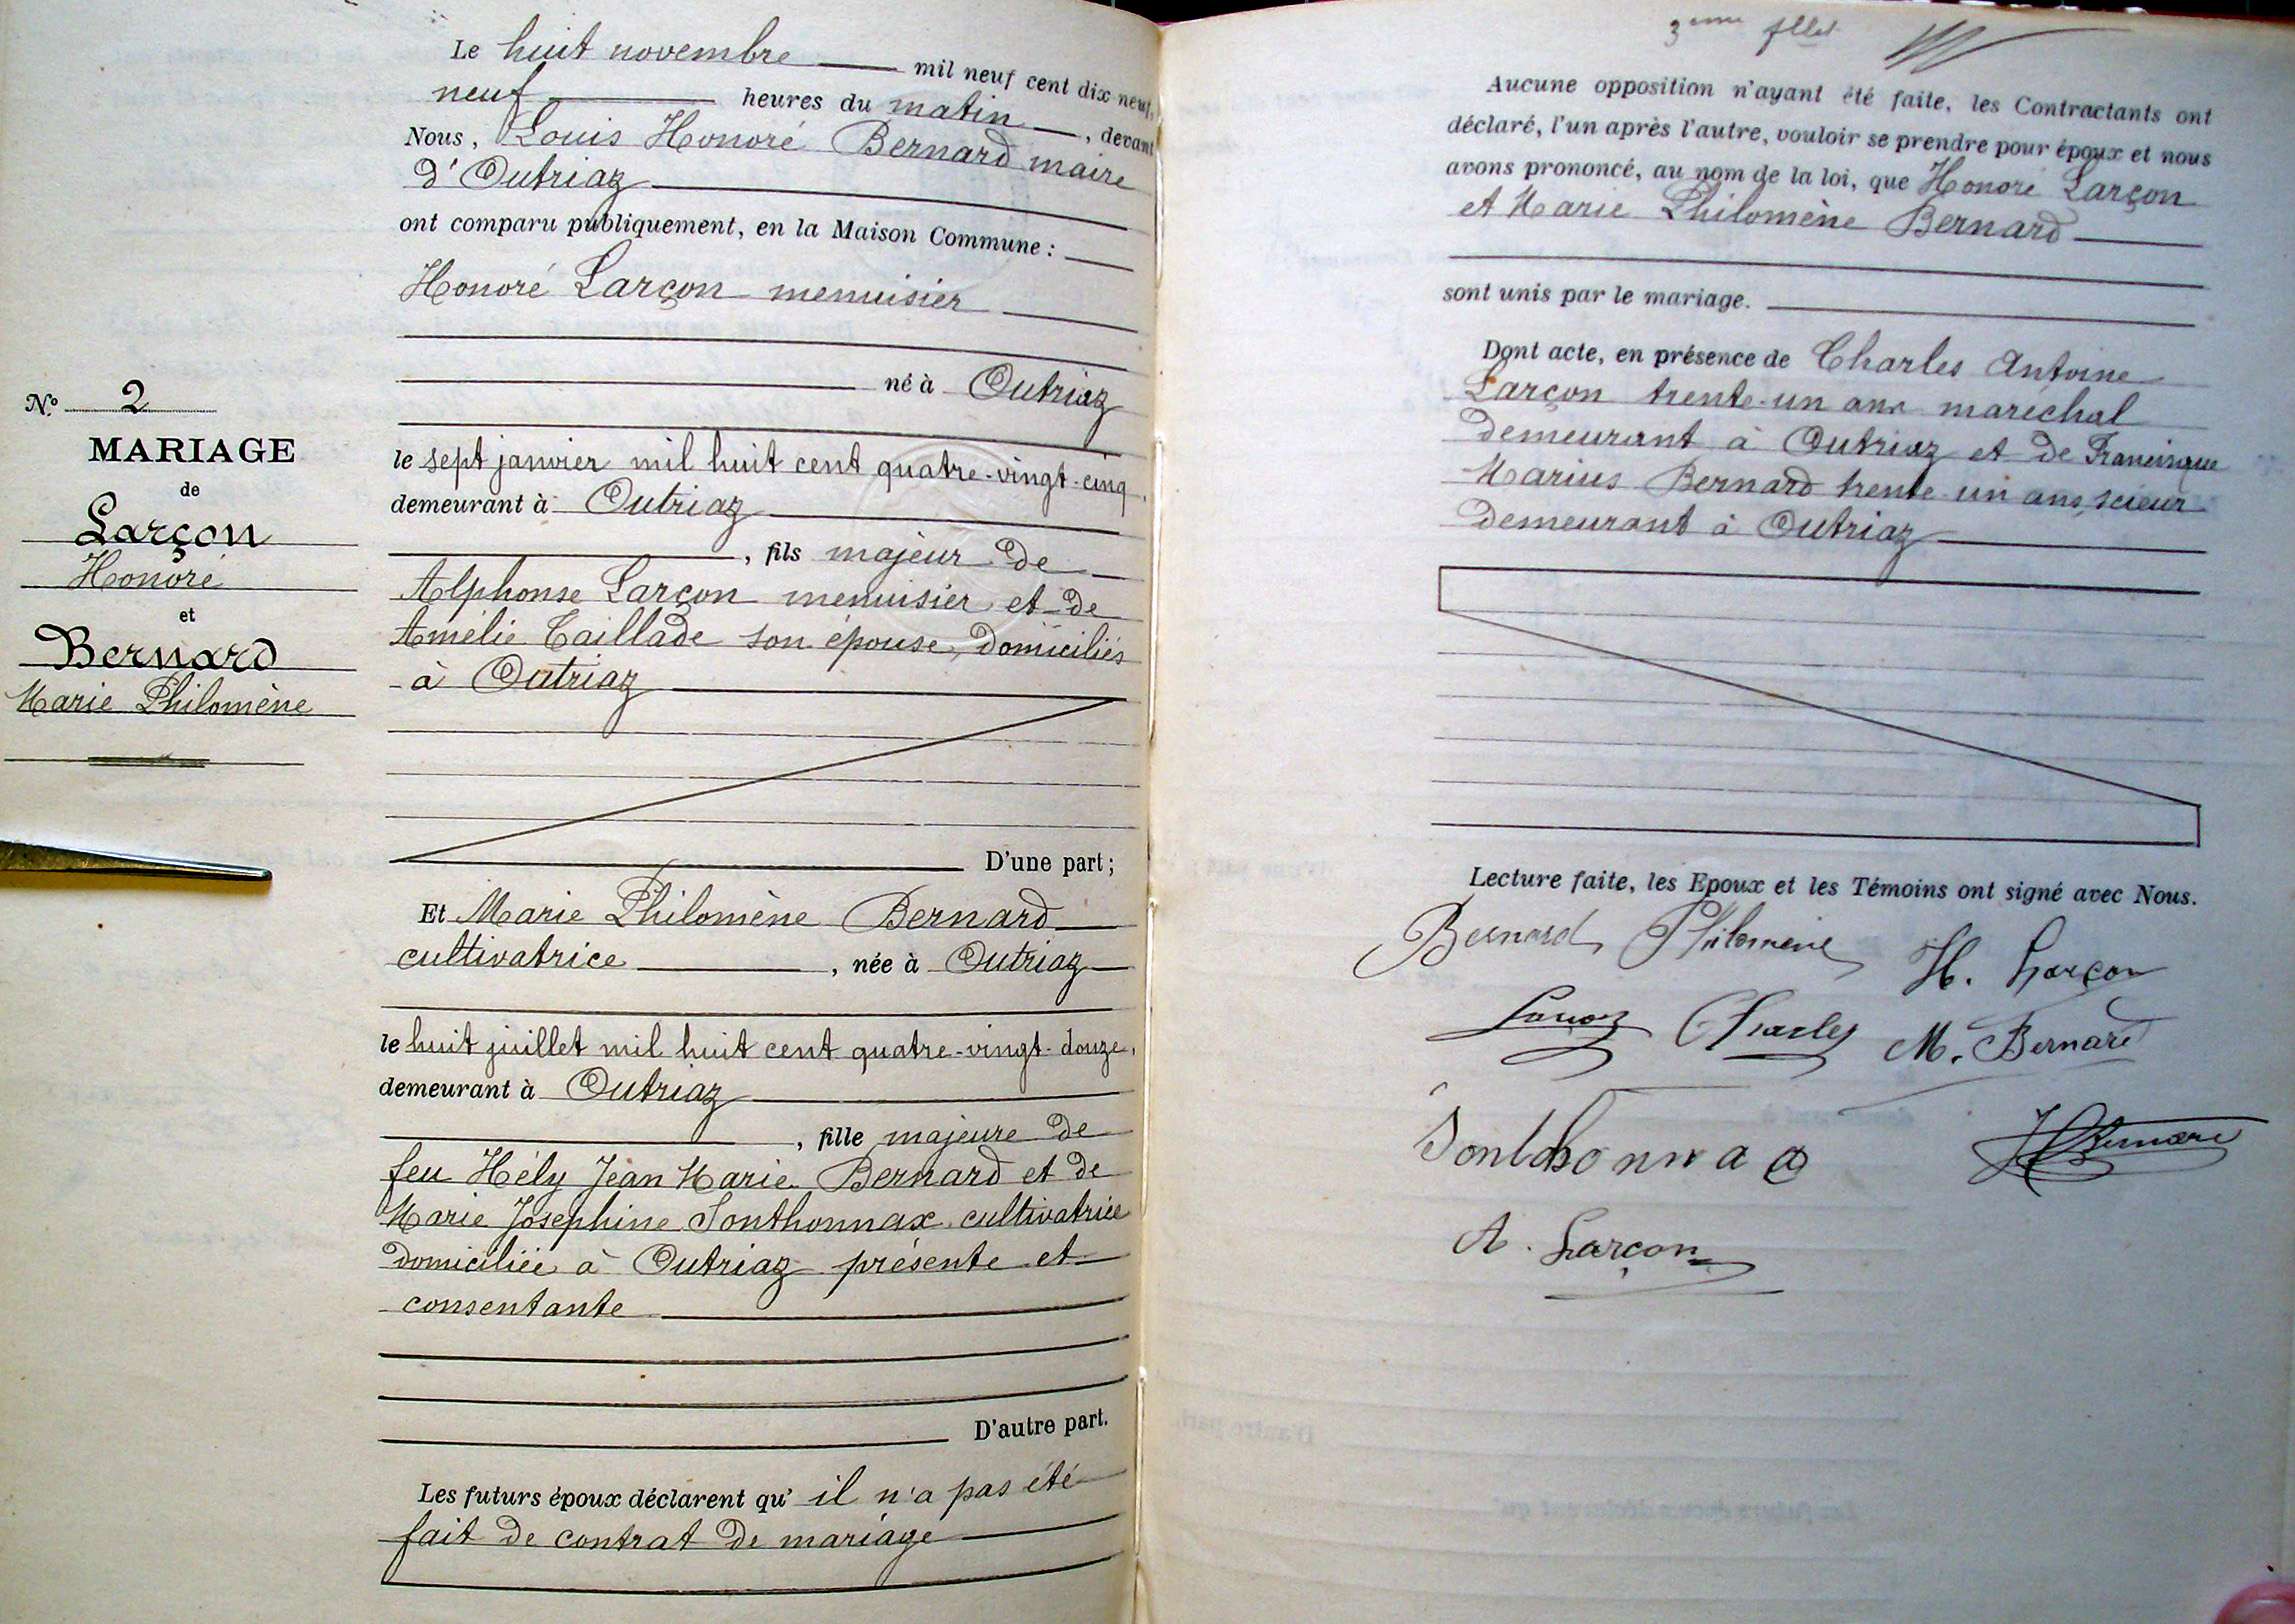 Le huit novembre mil neuf cent dix-neuf,
neuf heures du matin, devant
Nous, Louis Honoré Bernard maire
d'Outriaz
ont comparu publiquement, en la Maison Commune :
Honoré Larçon menuisier
né à Outriaz
le sept janvier mil huit cent quatre-vingt-cinq,
demeurant à Outriaz
, fils majeur de
Alphonse Larçon menuisier et de
Amélie Taillade son épouse, domiciliés
à Outriaz
D'une part ;
Et Marie Philomène Bernard
cultivatrice, née à Outriaz
le huit juillet mil huit cent quatre-vingt-douze,
demeurant à Outriaz
, fille majeure de
feu Hély Jean Marie Bernard et de
Marie Josephine Sonthonnax cultivatrice
domiciliée à Outriaz présente et
consentante
D'autre part.
Les futurs époux déclarent qu' il n'a pas été
fait de contrat de mariage
N.º 2
MARIAGE
de
Larçon
Honoré
et
Bernard
Marie Philomène
3eme
Aucune opposition n'ayant été faite, les Contractants ont
déclaré, l'un après l'autre, vouloir se prendre pour époux et nous
avons prononcé, au nom de la loi, que Honoré Larçon
et Marie Philomène Bernard
sont unis par le mariage.
Dont acte, en présence de Charles Antoine
Larçon trente-un ans maréchal
demeurant à Outriaz et de Francisque
Marius Bernard trente-un ans, scieur
demeurant à Outriaz
Lecture faite, les Epoux et les Témoins ont signé avec Nous.
Bernard Philomène H. Larçon
Charles M. Bernard
Bernard
A. Larçon